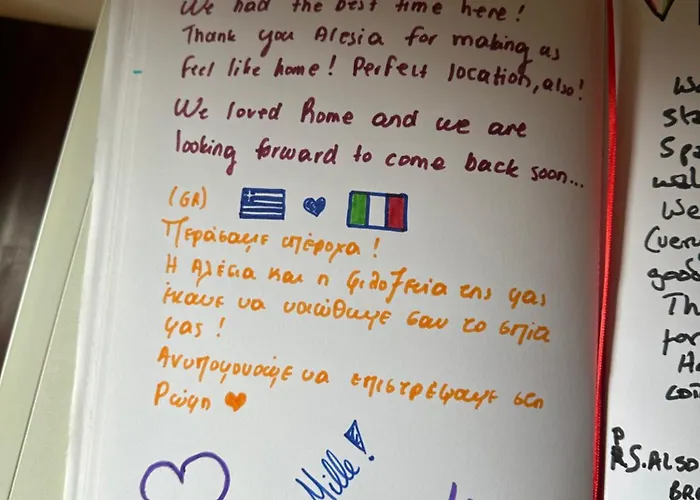 We had the best time here!
Thank you Alesia for making us
feel like home! Perfect location, also!
We loved Rome and we are
looking forward to come back soon...
(GR)
Περάσαμε υπέροχα!
Η Αλέσια και η φιλοξενία της μας
έκανε να νοιώθουμε σαν το σπίτι
μας!
Ανυπομονούμε να επιστρέψουμε στη
Ρώμη
Mille!
We
sta
Spa
wal
We
(ver
good
Th
for
Ha
P
RS. ALSO